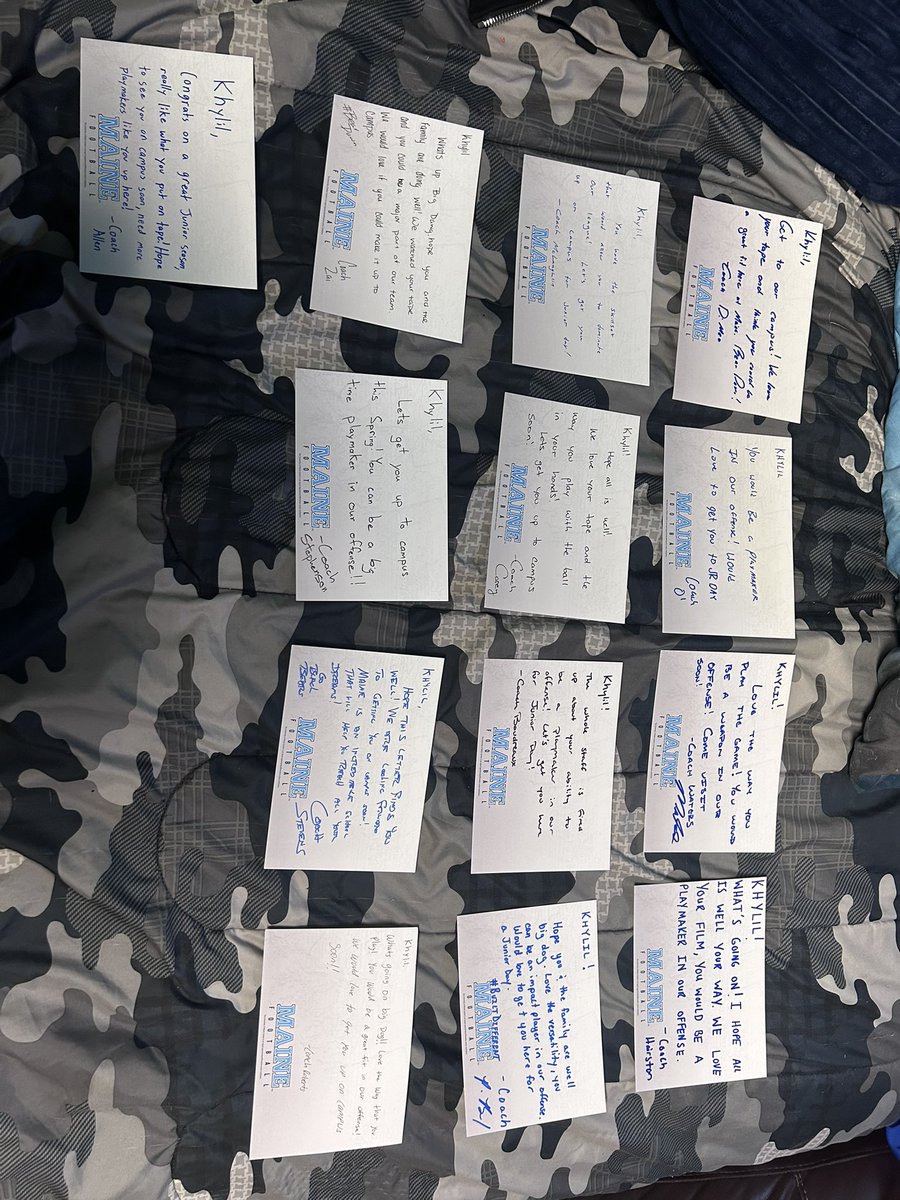 Khylil,
Get to our campus! We love
your tape and think you would be
a great fit here at Maine. Bear Den!
Coach
MAINE
FOOTBALL
KHYLIL
You would Be a playmaker
IN our offense! Would
Love to get you to JR DAY
Coach
O'
MAINE
FOOTBALL
KHYLIL!
LOVE THE WAY YOU
PLAY THE GAME! YOU WOULD
BE A WEAPON IN OUR
OFFENSE! COME VISIT
SOON!
-COACH WATERS
MAINE
FOOTBALL
KHYLIL!
WHAT'S GOING ON! I HOPE ALL
IS WELL YOUR WAY. WE LOVE
YOUR FILM, YOU WOULD BE A
PLAYMAKER IN OUR OFFENSE.
- Coach
Hairston
MAINE
FOOTBALL
Khylil,
You have the skillset
that would allow you to dominate
our league! Let's get you
up on campus for Junior Day!
- Coach
MAINE
FOOTBALL
Khylil!
Hope all is well!
We love your tape and the
way you play with the ball
in your hands!
Lets get you up to campus
Soon!
- Coach
Carey
MAINE
FOOTBALL
Khylil!
The whole staff is fired
up about your ability to
be a playmaker in our
offense! Let's get you here
for Junior Day!
- Coach Boudreaux
MAINE
FOOTBALL
KHYLIL!
Hope you & the family are well
big dog. Love the versatility, you
can be an impact player in our offense.
Would love to get you here for
a Junior Day.
#BUILTDIFFERENT
- Coach
MAINE
FOOTBALL
Khylil
Whats up Big Dawg, hope you and the
Family are doing well. We watched your tape
and you could be a major part of our team.
We would love it if you could make it up to
Campus
Coach
Zai
MAINE
FOOTBALL
Khylil,
Lets get you up to campus
this Spring! You can be a big
time playmaker in our offense!!
- Coach
Stephenson
MAINE
FOOTBALL
KHYLIL,
HOPE THIS LETTER FINDS YOU
WELL! WE ARE LOOKING FORWARD
TO GETTING YOU ON CAMPUS SOON!
MAINE IS AN INCREDIBLE SCHOOL
THAT WILL HELP YOU REACH ALL YOUR
DREAMS!
GO
BLACK
BEARS
COACH
STEVENS
MAINE
FOOTBALL
Khylil
Whats going on big Dog!! Love the way that you
play! You would be a great fit in our offense!
We would love to get you up on campus
Soon!!
- Coach Roberts
MAINE
FOOTBALL
Khylil,
Congrats on a great Junior season,
really like what you put on tape! Hope
to see you on campus soon, need more
playmakers like you up here!
- Coach
Allen
MAINE
FOOTBALL